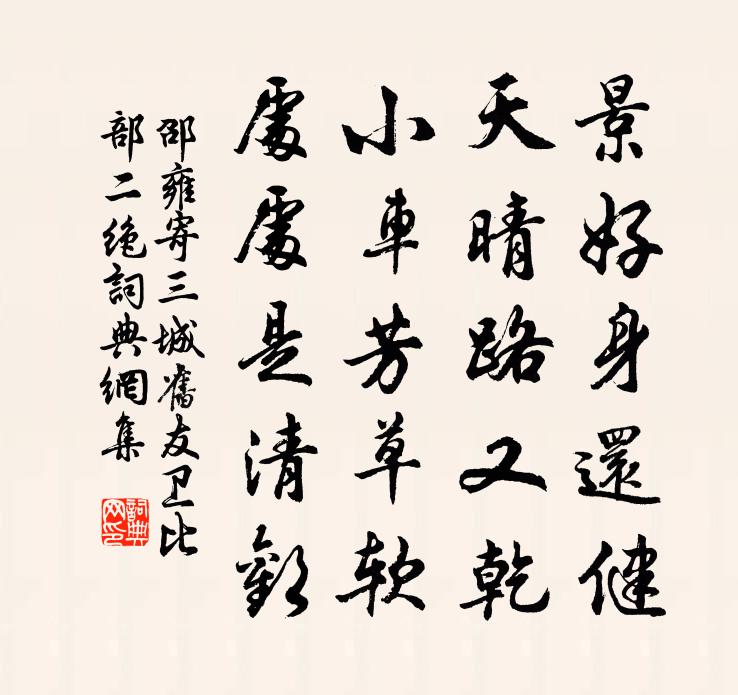 景好身還健
天晴路又乾
小車芳草軟
處處是清歡
邵雍寄三城舊友卫比
部二绝詞典網集
詞典网印